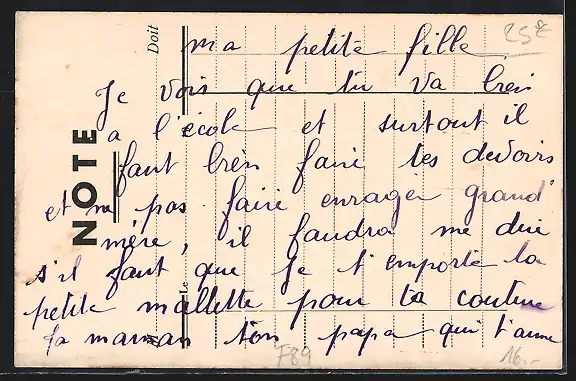 Doit
NOTE
Le
25€
ma petite fille
Je vois que tu va bien
a l'école et surtout il
faut bien faire tes devoirs
et ne pas faire enrager grand
mère, il faudra me dire
s'il faut que je t'emporte la
petite mallette pour ta couture
ta maman ton papa qui t'aime
F89
16.-